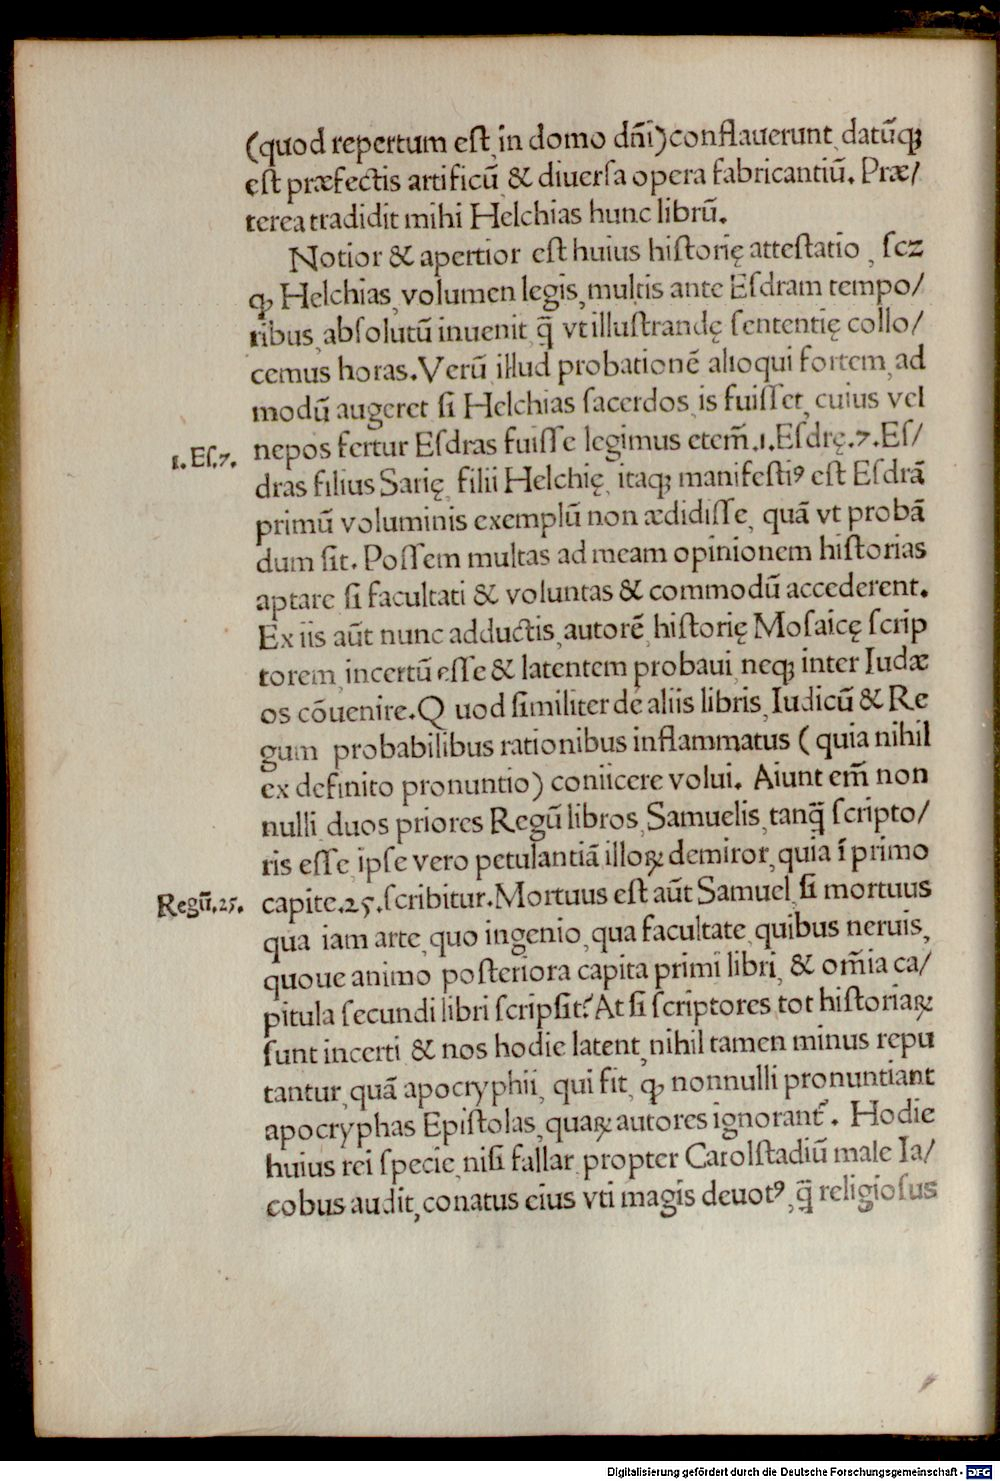 (quod repertum est, in domo dñi) conflauerunt, datūq;
est præfectis artificū & diuersa opera fabricantiū. Præ/
terea tradidit mihi Helchias hunc librū.
Notior & apertior est huius historię attestatio, scz
ꝙ Helchias, volumen legis, multis ante Esdram tempo/
ribus, absolutū inuenit, q̄ vt illustrandę sententię collo/
cemus horas. Verū illud probationē alioqui fortem, ad
modū augeret si Helchias sacerdos, is fuisset, cuius vel
1. Es.7.
nepos fertur Esdras fuisse legimus etem̄.1.Esdrę.7.Es/
dras filius Sarię, filii Helchię, itaq; manifestiꝰ est Esdrā
primū voluminis exemplū non ædidisse, quā vt probā
dum sit. Possem multas ad meam opinionem historias
aptare si facultati & voluntas & commodū accederent.
Ex iis aūt nunc adductis, autorē, historię Mosaicę scrip
torem, incertū esse & latentem probaui, neq; inter Iudæ
os cōuenire. Q uod similiter de aliis libris, Iudicū & Re
gum probabilibus rationibus inflammatus ( quia nihil
ex definito pronuntio) coniicere volui. Aiunt em̄ non
nulli duos priores Regū libros, Samuelis, tanq̄ scripto/
ris esse, ipse vero petulantiā illoꝝ demiror, quia ī primo
Regū.25.
capite.25.scribitur. Mortuus est aūt Samuel, si mortuus
qua iam arte, quo ingenio, qua facultate, quibus neruis,
quoue animo posteriora capita primi libri, & om̄ia ca/
pitula secundi libri scripsit? At si scriptores tot historiaꝝ
sunt incerti & nos hodie latent, nihil tamen minus repu
tantur, quā apocryphii, qui fit, ꝙ nonnulli pronuntiant
apocryphas Epistolas, quaꝝ autores ignorant᷑. Hodie
huius rei specie, nisi fallar, propter Carolstadiū male Ia/
cobus audit, conatus eius vti magis deuotꝰ, q̄ religiosus
Digitalisierung gefördert durch die Deutsche Forschungsgemeinschaft - DFG